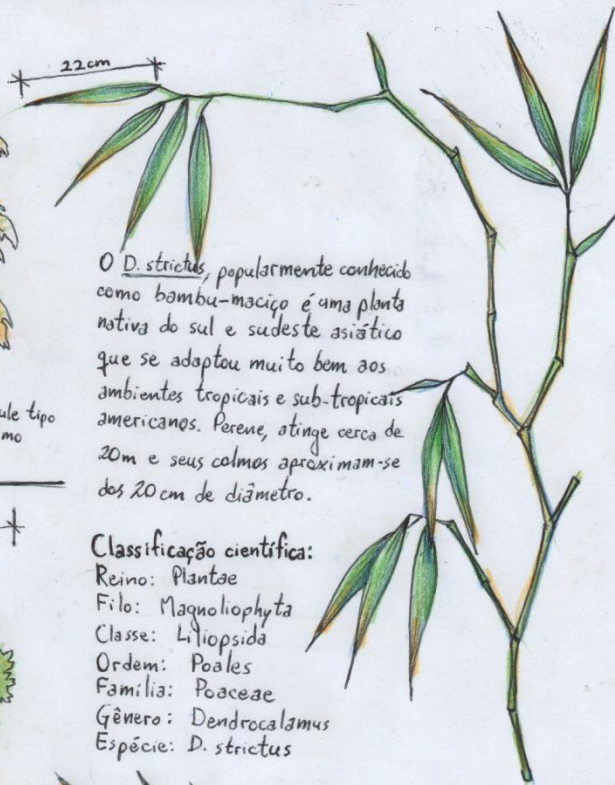 22cm
O D. strictus, popularmente conhecido
como bambu-maciço é uma planta
nativa do sul e sudeste asiático
que se adaptou muito bem aos
ambientes tropicais e sub-tropicais
americanos. Perene, atinge cerca de
20m e seus colmos aproximam-se
dos 20cm de diâmetro.
ule tipo
mo
Classificação científica:
Reino: Plantae
Filo: Magnoliophyta
Classe: Liliopsida
Ordem: Poales
Família: Poaceae
Gênero: Dendrocalamus
Espécie: D. strictus